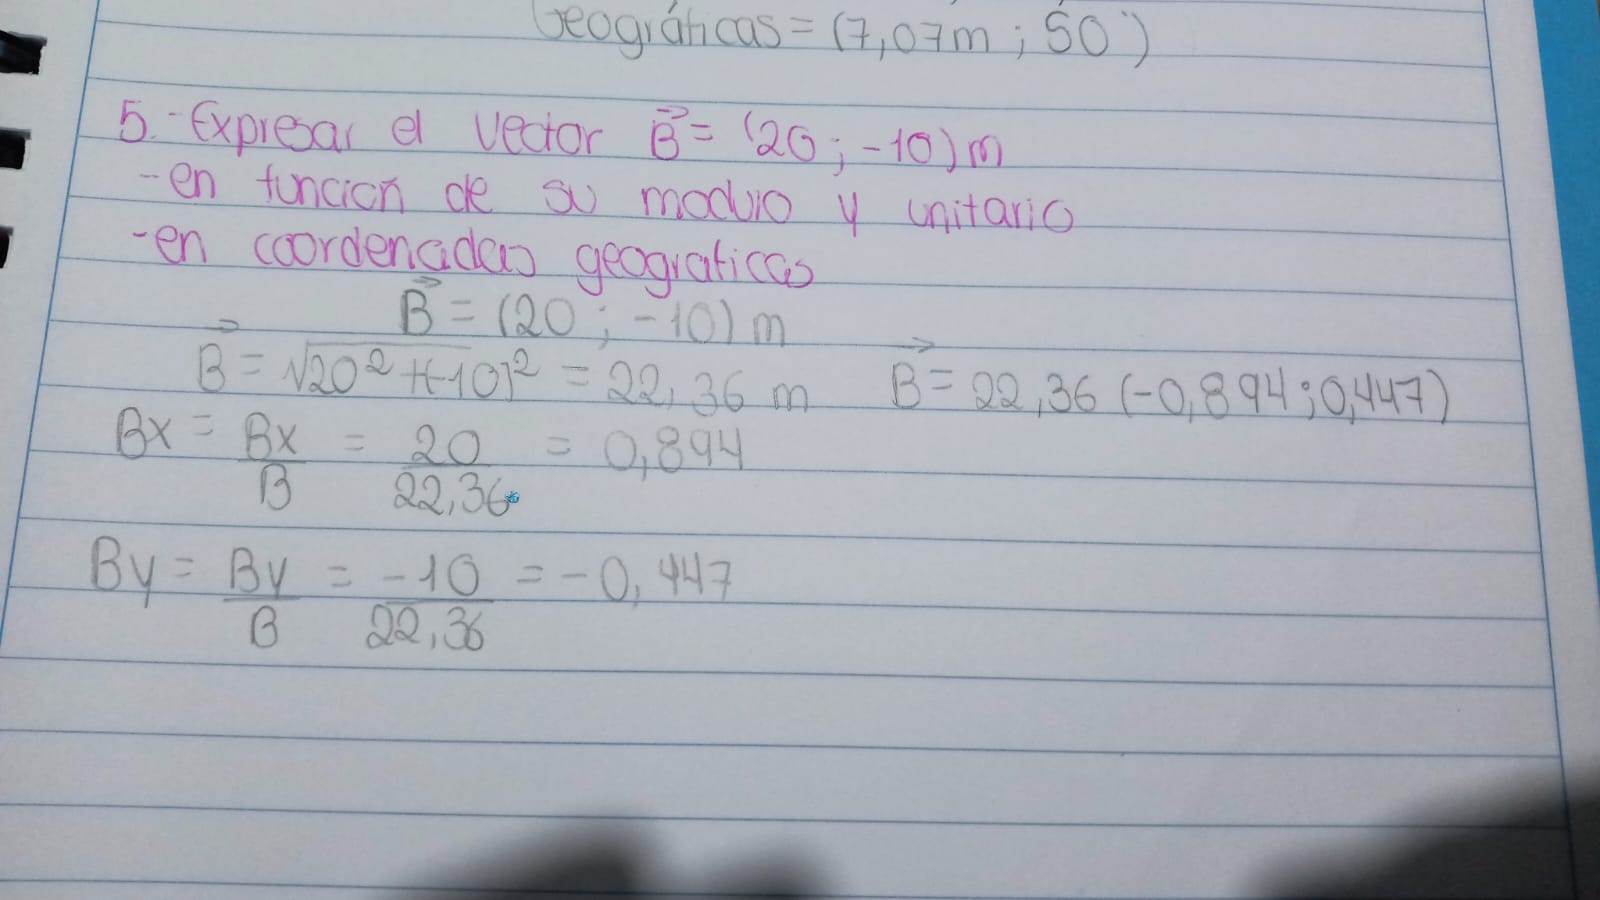 Geográficas = (7,07m ; SO)
5.- Expresar el vector B⃗ = (20 ; -10) m
- en función de su modulo y unitario
- en coordenadas geograficas
B⃗ = (20 ; -10) m
B⃗ = √20² + (-10)² = 22,36 m B⃗ = 22,36 (-0,894 ; 0,447)
Bx = Bx/B = 20/22,36 = 0,894
By = By/B = -10/22,36 = -0,447